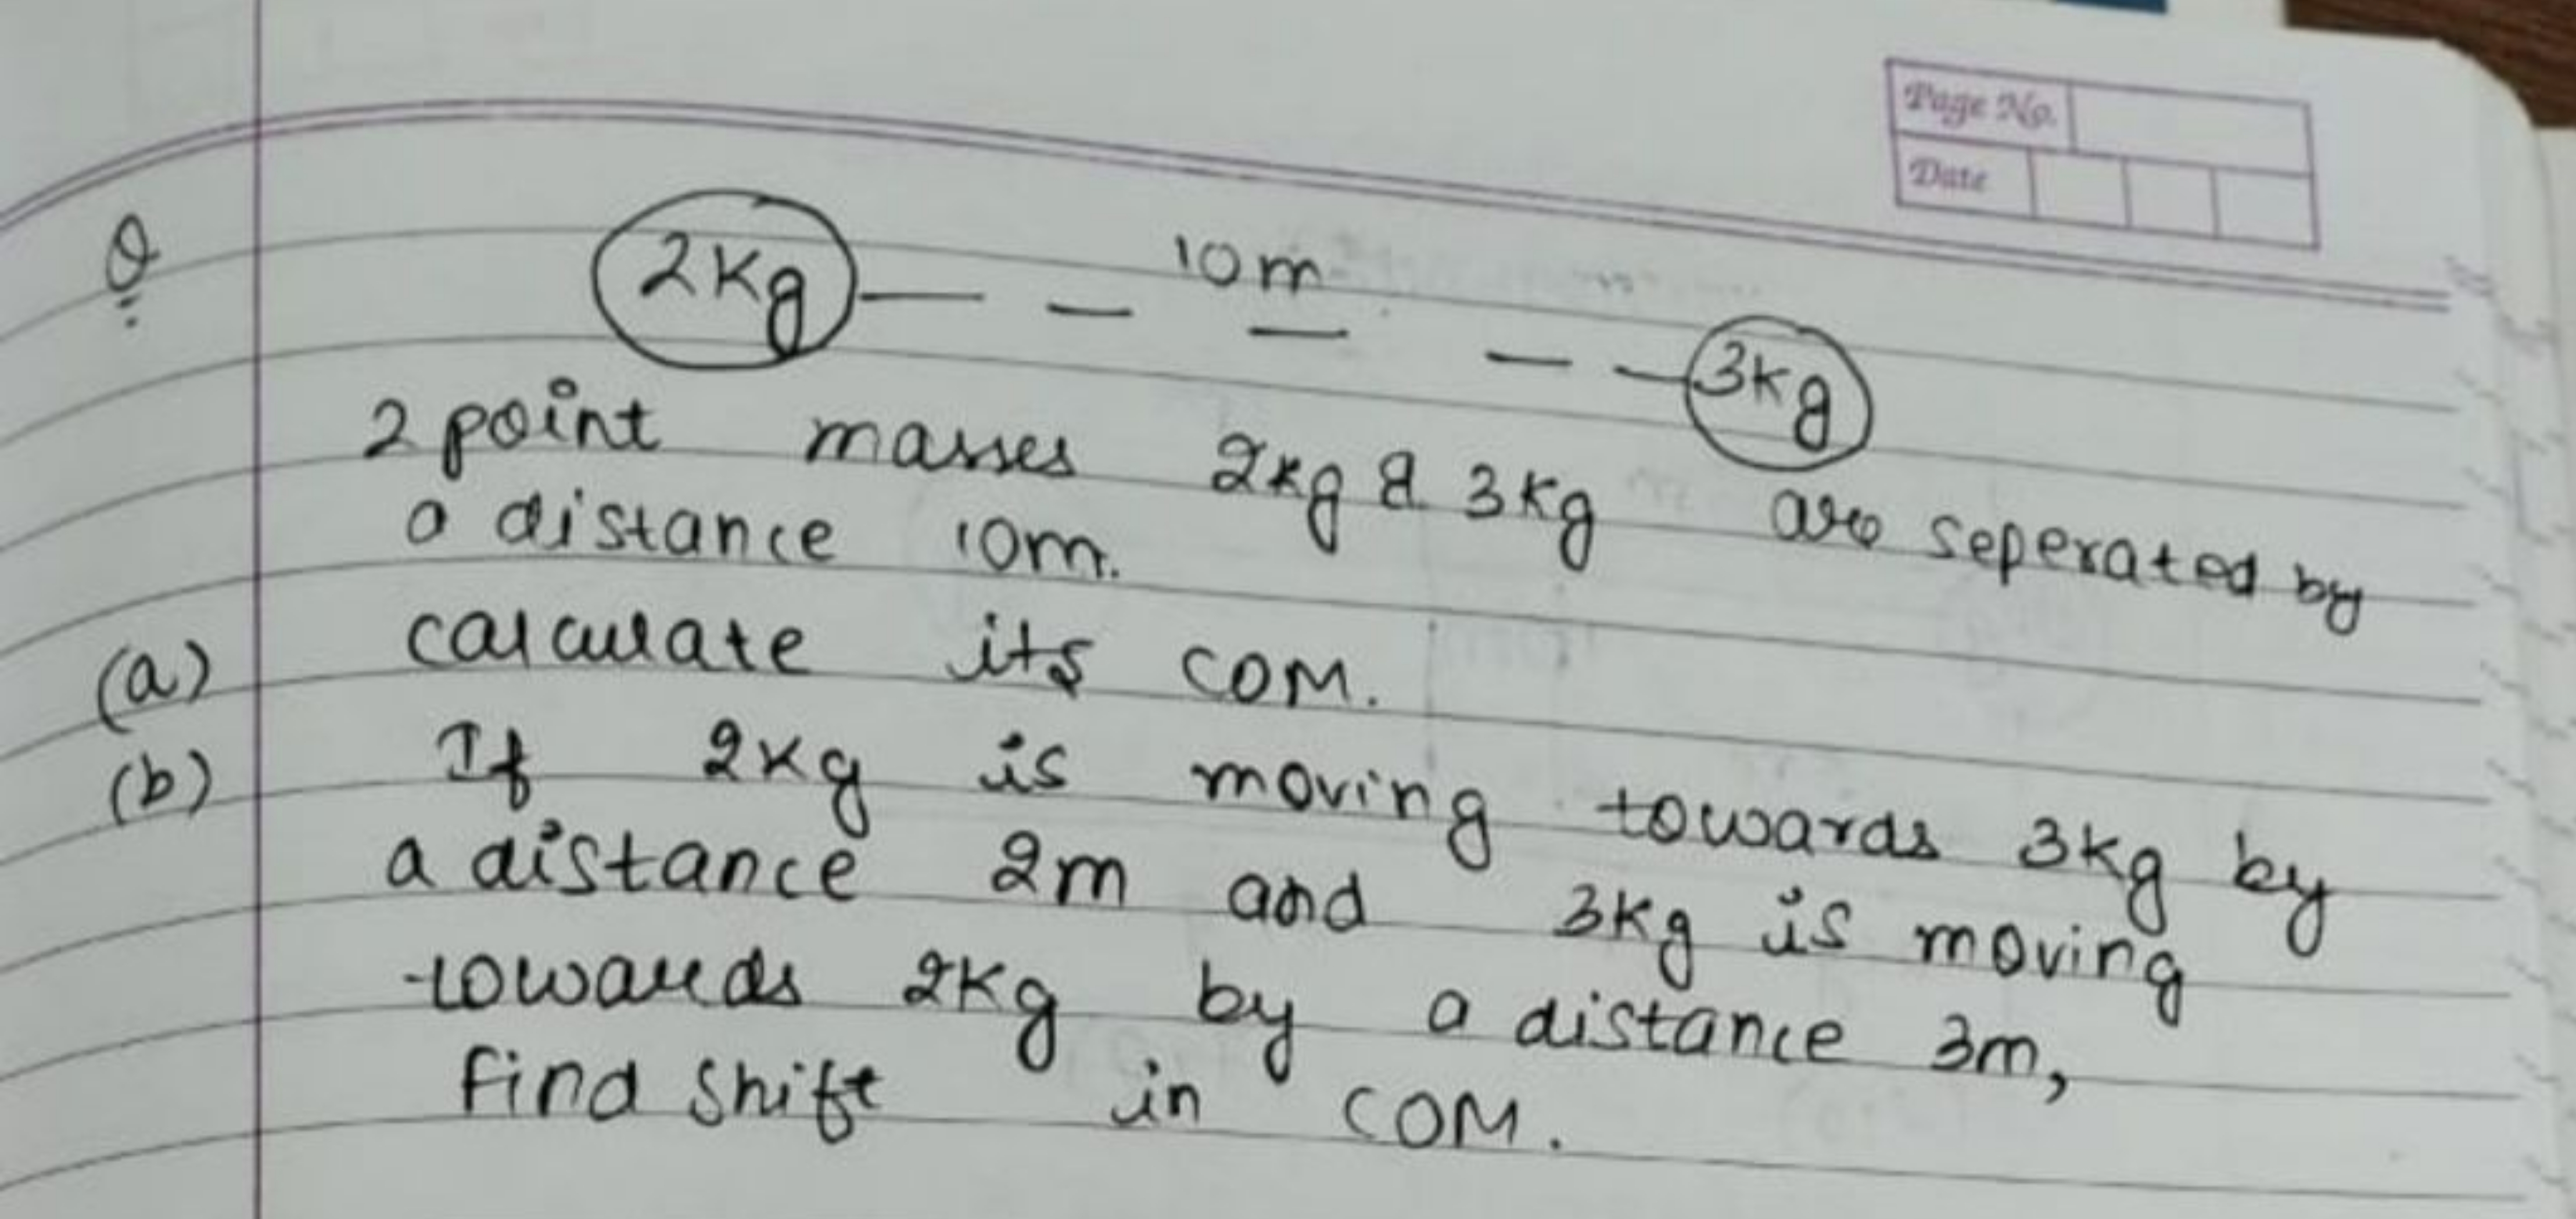 Page No.
Date
Q
2Kg 10m 3Kg
2 point masses 2Kg & 3Kg are seperated by
a distance 10m.
(a) calculate its COM.
(b) If 2Kg is moving towards 3Kg by
a distance 2m and 3Kg is moving
towards 2Kg by a distance 3m,
Find Shift in COM.